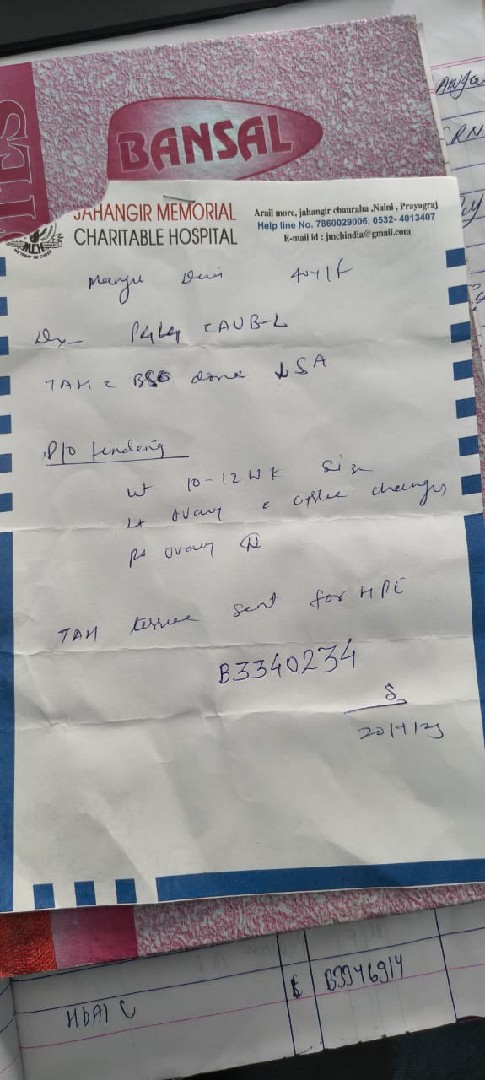 BANSAL
JAHANGIR MEMORIAL
CHARITABLE HOSPITAL
Arail more, jahangir chauraha ,Naini , Prayagraj
Help line No. 7860029006, 0532- 4013407
E-mail id : jmchindia@gmail.com
Devi
TAH c BSO done SA
P/O finding
ut 10-12 wk size
Lt ovary c cystic changes
Rt ovary N
TAH tissue sent for HPE
B3340234
HbA1C
B3946914